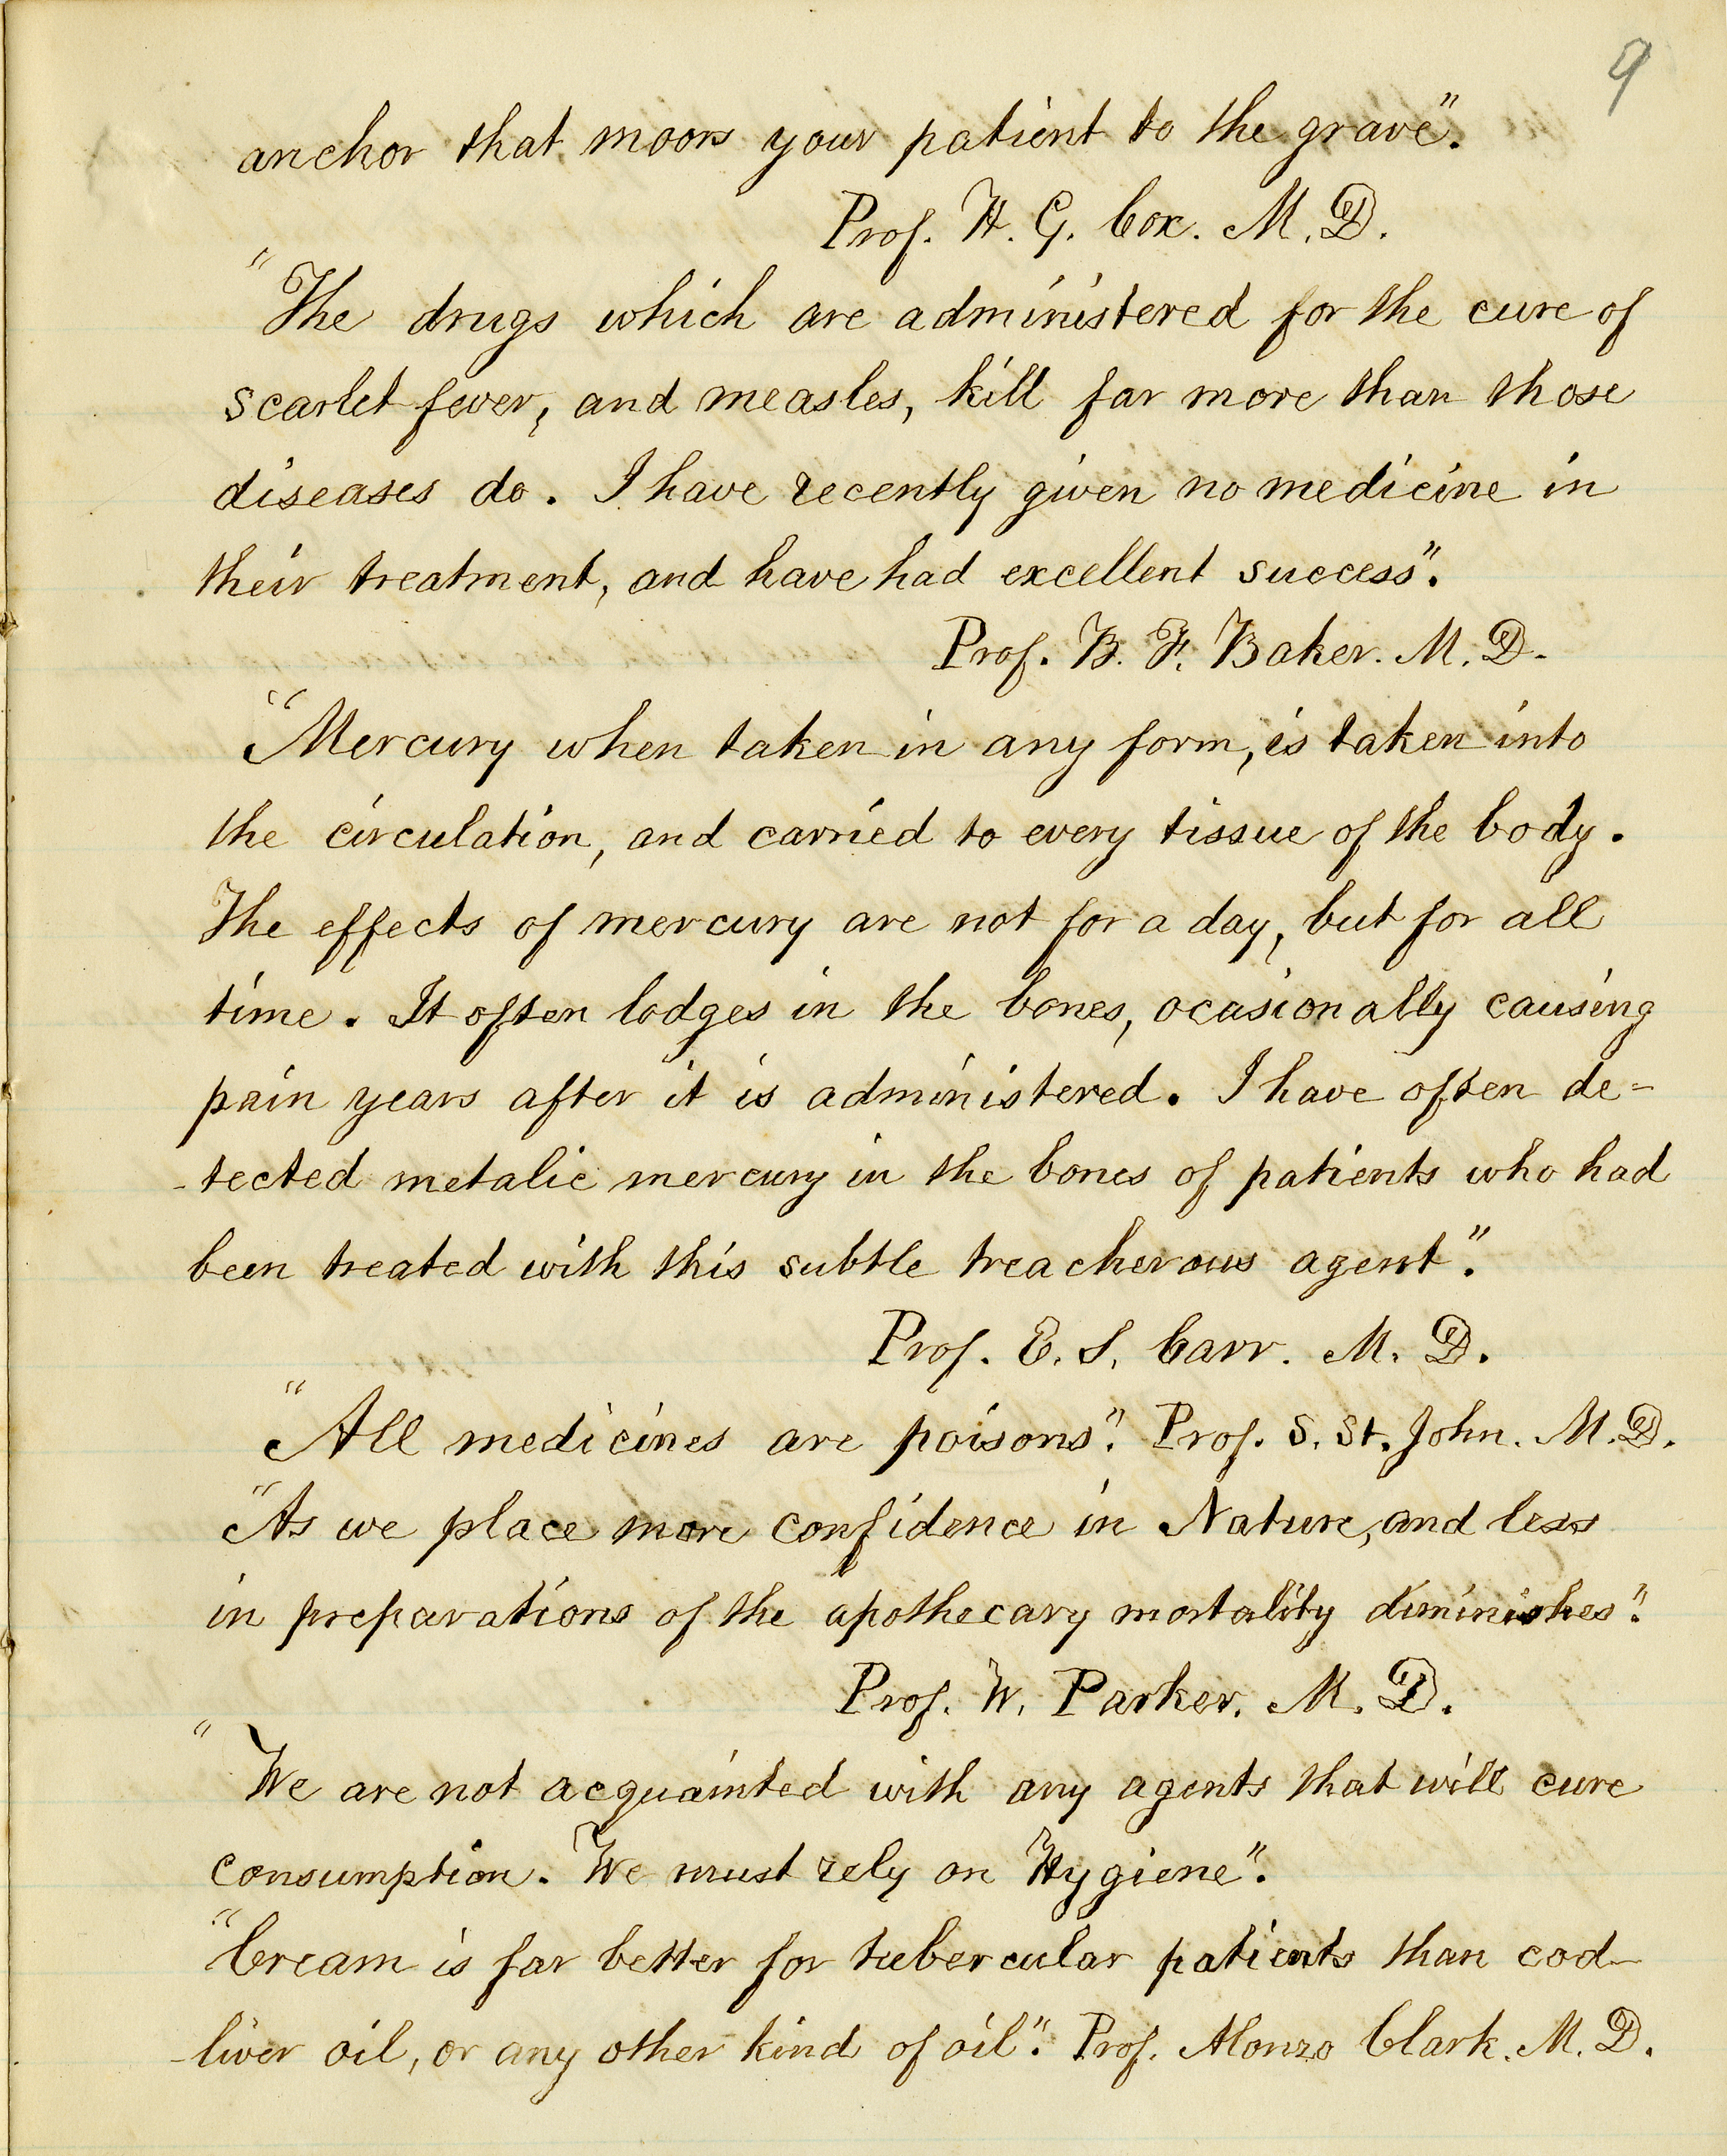 9
anchor that moors your patient to the grave".
Prof. H. G. Cox. M. D.
"The drugs which are administered for the cure of
scarlet fever, and measles, kill far more than those
diseases do. I have recently given no medicine in
their treatment, and have had excellent success".
Prof. B. F. Baker. M. D.
"Mercury when taken in any form, is taken into
the circulation, and carried to every tissue of the body.
The effects of mercury are not for a day, but for all
time. It often lodges in the bones, ocasionally causing
pain years after it is administered. I have often de-
-tected metalic mercury in the bones of patients who had
been treated with this subtle treacherous agent".
Prof. E. S. Carr. M. D.
"All medicines are poisons". Prof. S. St. John. M. D.
"As we place more confidence in Nature, and less
in preparations of the apothecary mortality diminishes".
Prof. W. Parker. M. D.
"We are not acquainted with any agents that will cure
consumption. We must rely on Hygiene".
"Cream is far better for tubercular patients than cod-
-liver oil, or any other kind of oil". Prof. Alonzo Clark. M. D.